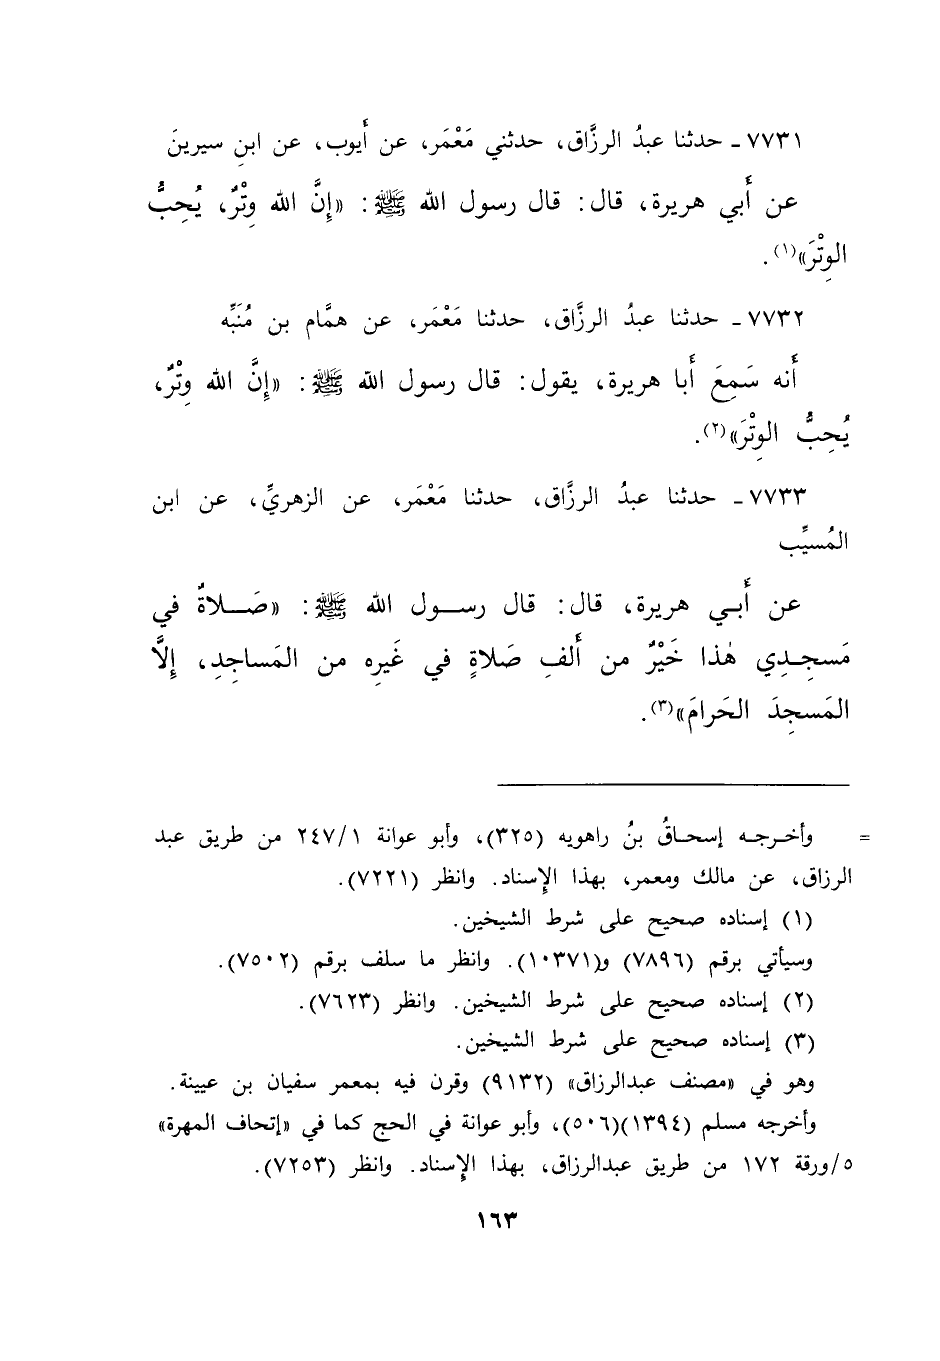 ٧٧٣١ ـ حدثنا عبدُ الرزَّاق، حدثني مَعْمَر، عن أَيوب، عن ابنِ سيرينَ
عن أَبي هريرة، قال: قال رسول الله ﷺ: «إِنَّ الله وِتْرٌ، يُحِبُّ
الوِتْرَ»(١).
٧٧٣٢ ـ حدثنا عبدُ الرزَّاق، حدثنا مَعْمَر، عن همَّام بن مُنَبِّه
أَنه سَمِعَ أَبا هريرة، يقول: قال رسول الله ﷺ: «إِنَّ الله وِتْرٌ،
يُحِبُّ الوِتْرَ»(٢).
٧٧٣٣ ـ حدثنا عبدُ الرزَّاق، حدثنا مَعْمَر، عن الزهريِّ، عن ابن
المُسيِّب
عن أَبي هريرة، قال: قال رسول الله ﷺ: «صَلاةٌ في
مَسجِدِي هٰذا خَيْرٌ من أَلفِ صَلاةٍ في غَيرِه من المَساجِدِ، إِلَّا
المَسجِدَ الحَرامَ»(٣).
= وأخرجه إسحاقُ بنُ راهويه (٣٢٥)، وأبو عوانة ٢٤٧/١ من طريق عبد
الرزاق، عن مالك ومعمر، بهذا الإسناد. وانظر (٧٢٢١).
(١) إسناده صحيح على شرط الشيخين.
وسيأتي برقم (٧٨٩٦) و(١٠٣٧١). وانظر ما سلف برقم (٧٥٠٢).
(٢) إسناده صحيح على شرط الشيخين. وانظر (٧٦٢٣).
(٣) إسناده صحيح على شرط الشيخين.
وهو في «مصنف عبدالرزاق» (٩١٣٢) وقرن فيه بمعمر سفيان بن عيينة.
وأخرجه مسلم (١٣٩٤)(٥٠٦)، وأبو عوانة في الحج كما في «إتحاف المهرة»
٥/ورقة ١٧٢ من طريق عبدالرزاق، بهذا الإسناد. وانظر (٧٢٥٣).
١٦٣